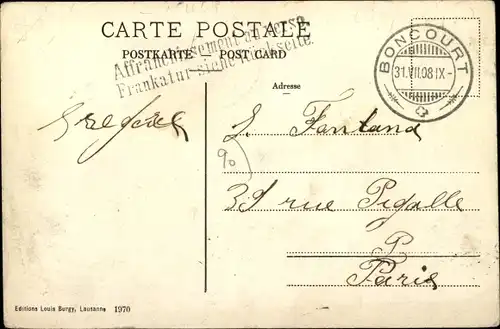 CARTE POSTALE
POSTKARTE — POST CARD
Affranchissement au verso
Frankatur siehe Rückseite.
BONCOURT
31.VII.08 IX-
Adresse
90
39 rue Pigalle
Paris
Editions Louis Burgy, Lausanne 1970